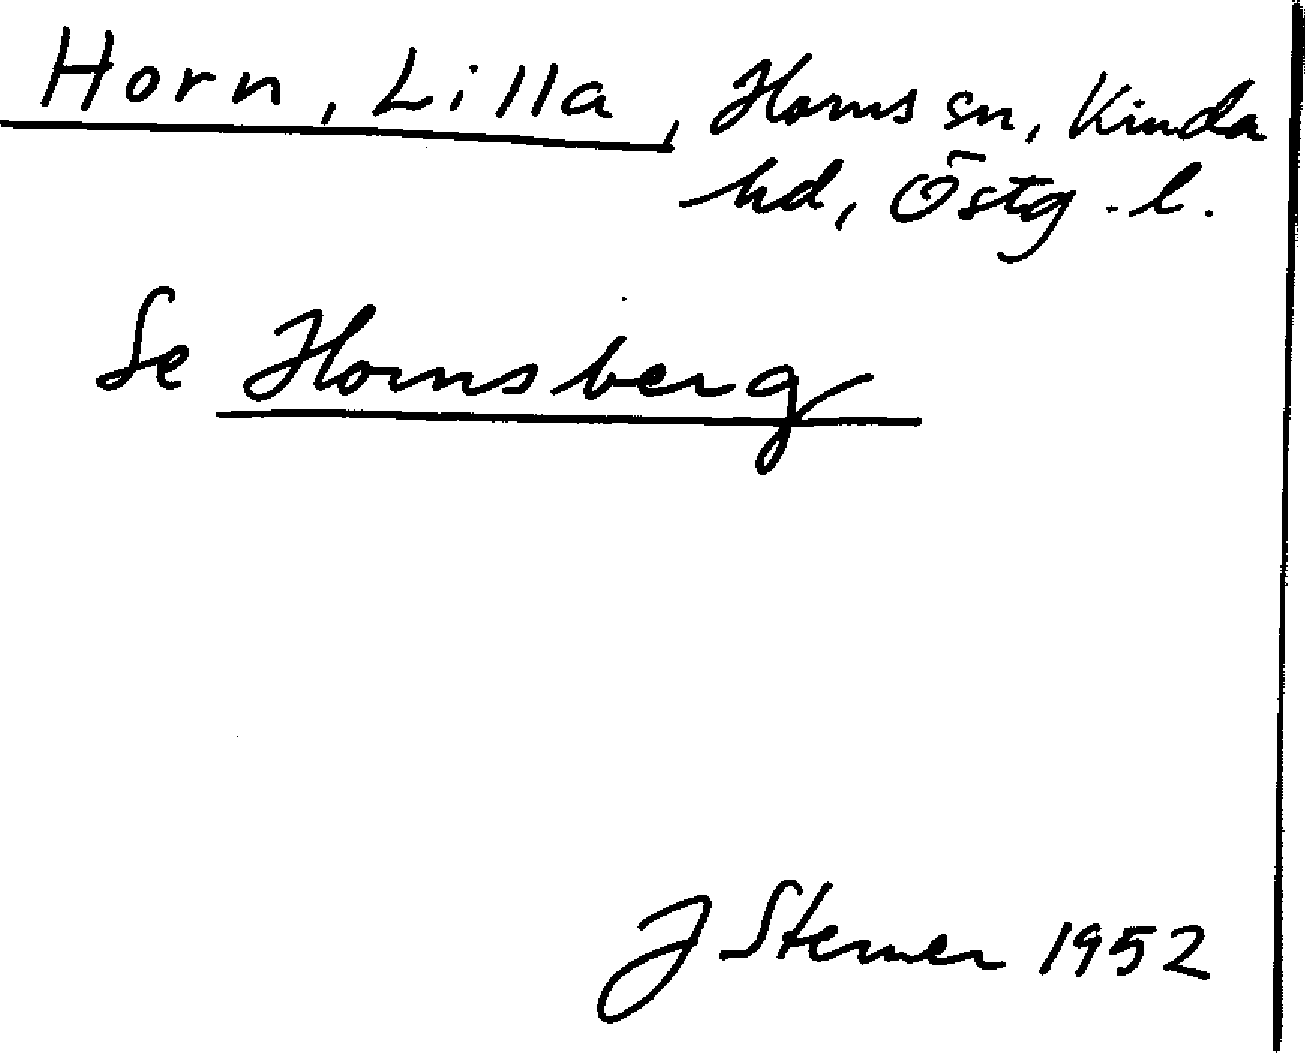 Horn, Lilla, Horns sn, Kinda
hd, Östg. l.
Se Hornsberg
J Sterner 1952